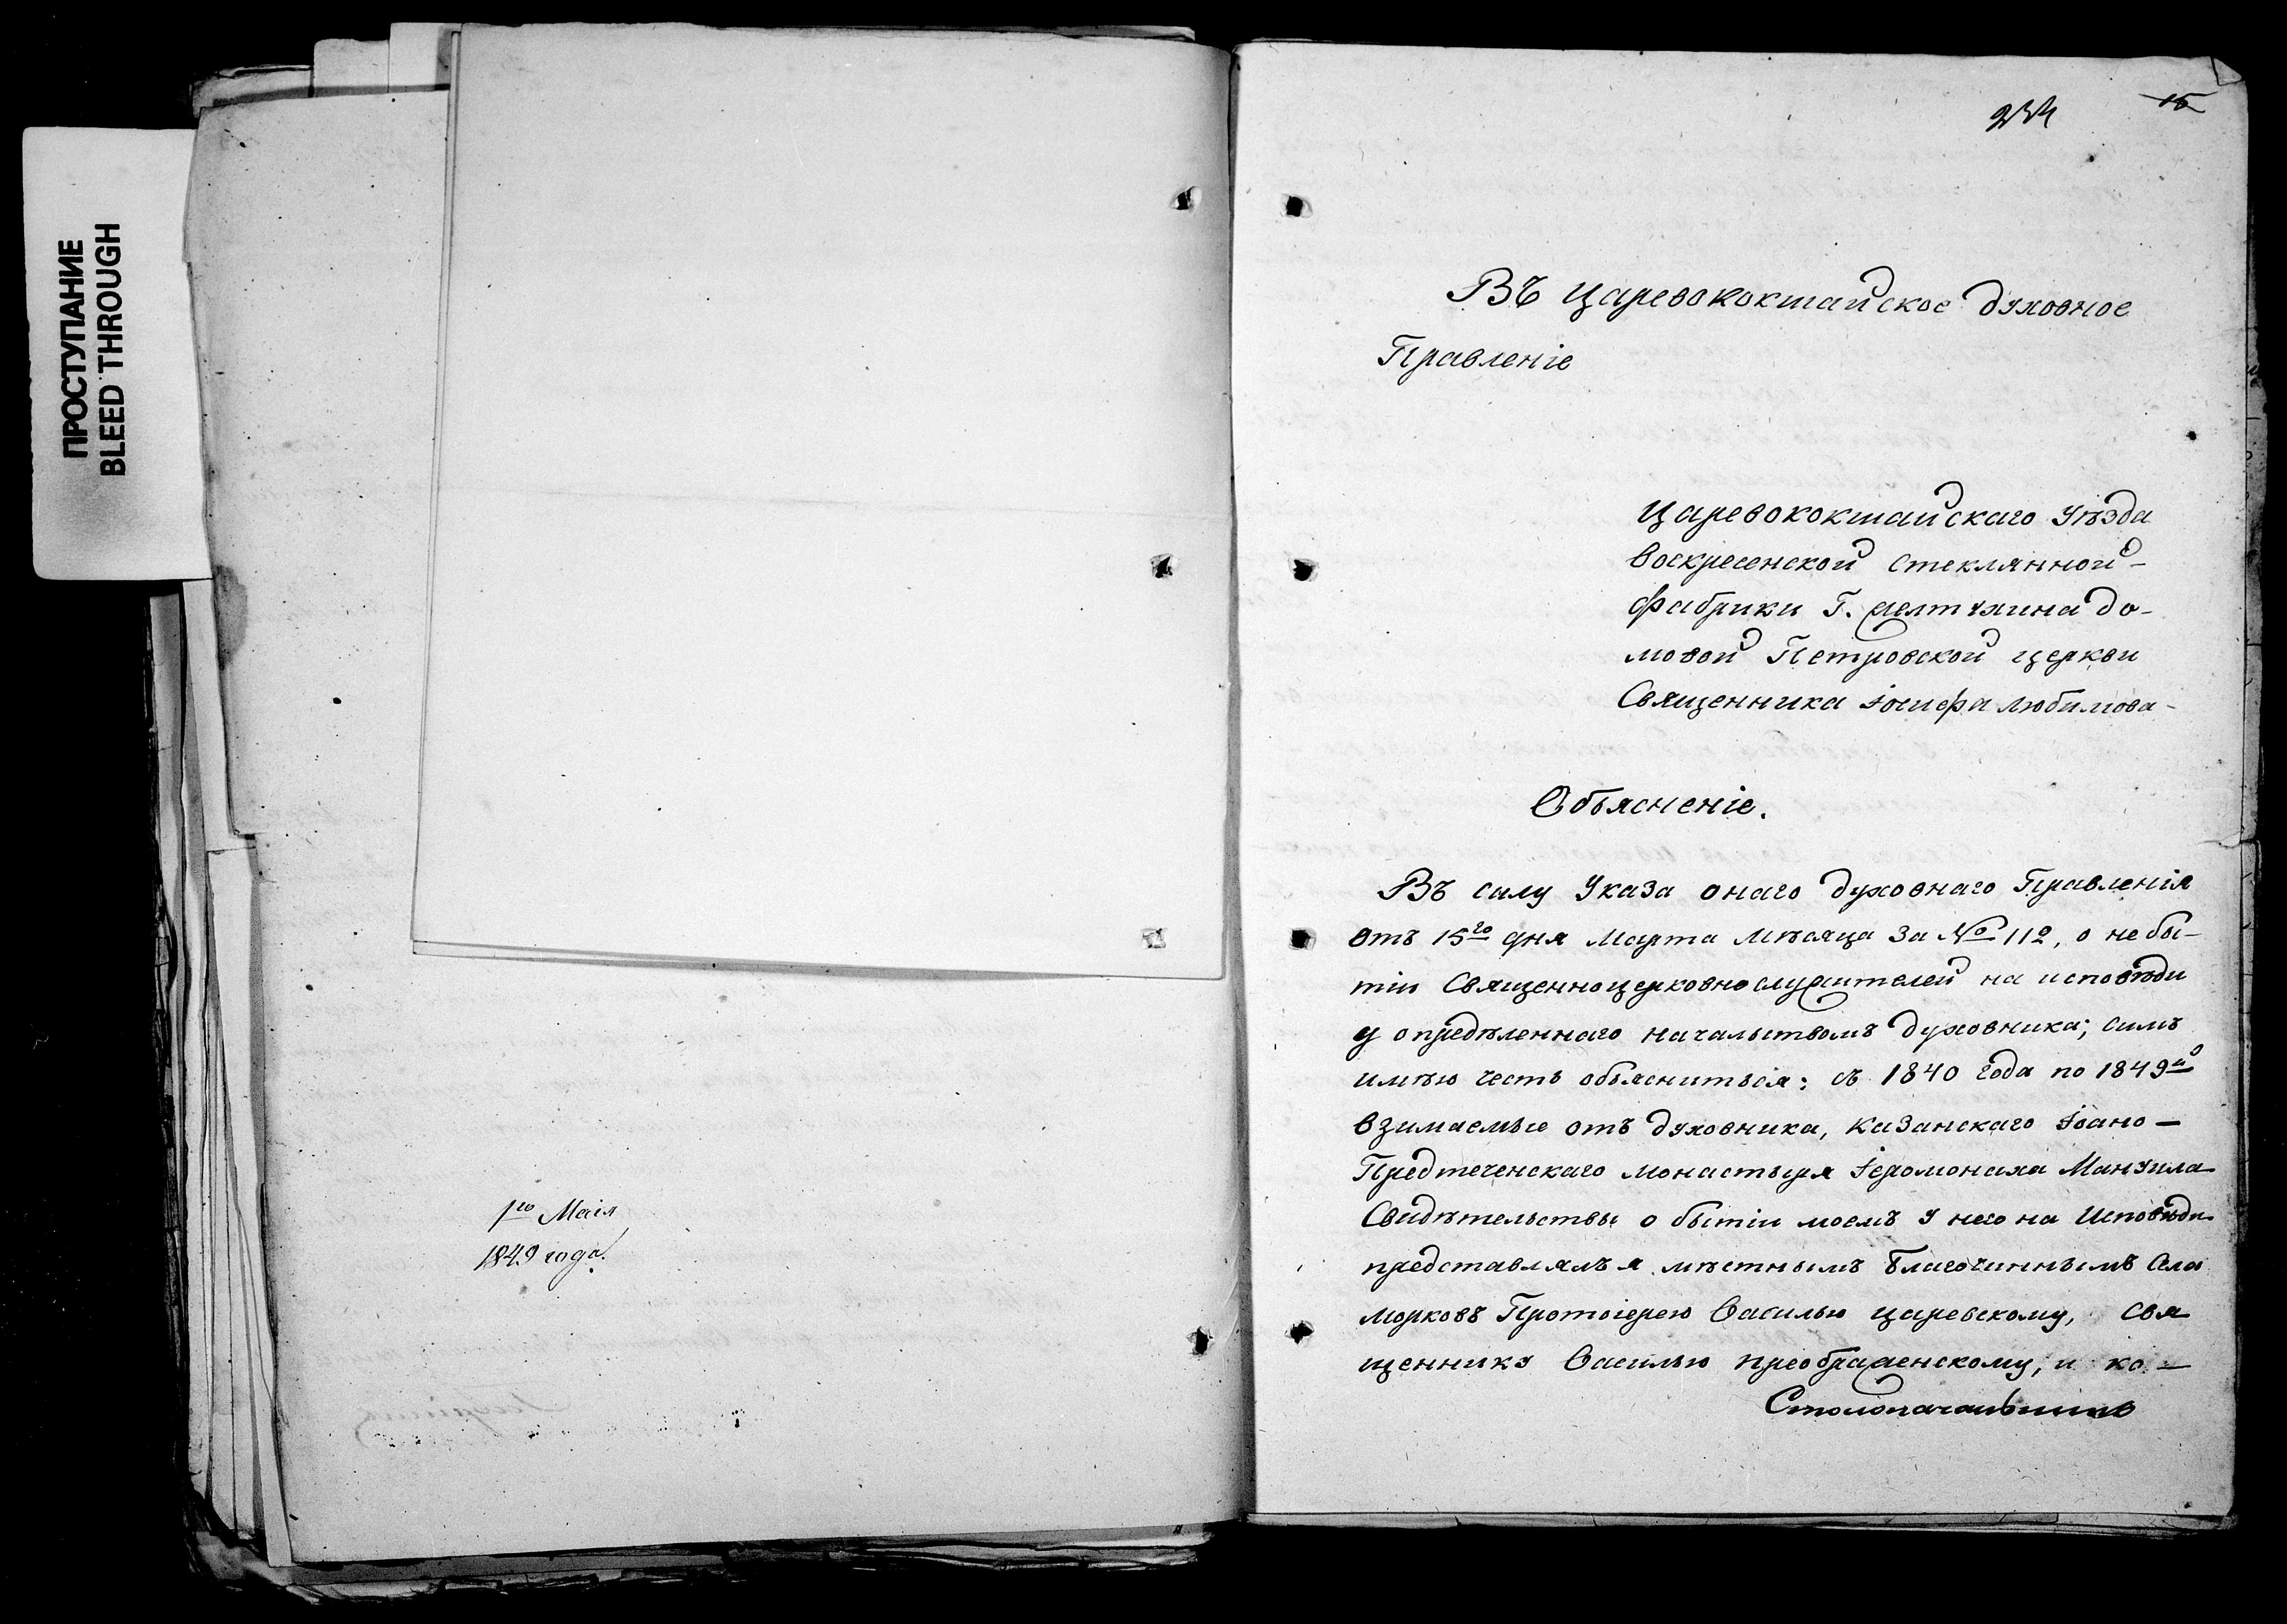 ПРОСТУПАНИЕ
BLEED THROUGH
1го Маія
1849 года.
234
15
Въ Царевококшайское духовное
Правленіе
Царевококшайскаго Уѣзда
Воскресенской стеклянной-
фабрики Г. Желтухина до-
мовой Петровской церкви
Священника Іосифа Любимова-
Объясненіе.
Въ силу Указа онаго духовнаго Правленія
отъ 15го дня Марта мѣсяца за № 112, о не бы-
тіи Священноцерковнослужителей на исповѣди
у опредѣленнаго начальствомъ духовника; симъ
имѣю честь объясниться: съ 1840 года по 1849й
взимаемые отъ духовника, Казанскаго Іоано-
Предтеченскаго монастыря Іеромонаха Мануила
Свидѣтельствы о бытіи моемъ у него на Исповѣди
представлялъ я мѣстнымъ Благочиннымъ Села
Морковъ Протоіерею Василью Царевскому, Свя
щеннику Василью Преображенскому, и ко-
Столоначальникъ